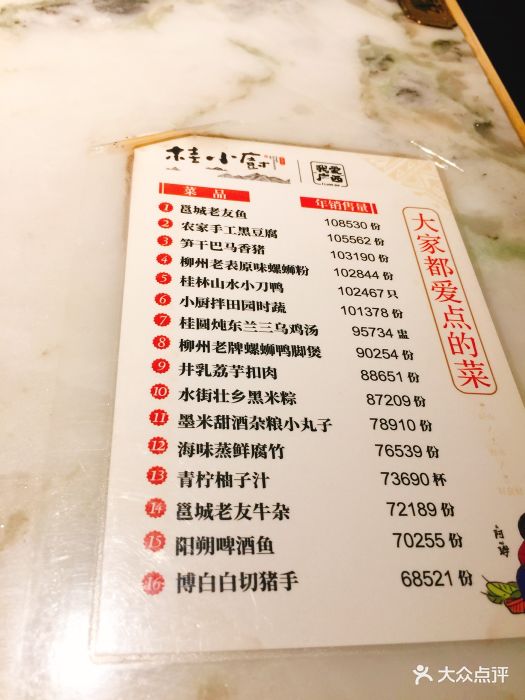 桂小廚
我爱广西
菜品 年销售量
大家都爱点的菜
1 邕城老友鱼 108530 份
2 农家手工黑豆腐 105562 份
3 笋干巴马香猪 103190 份
4 柳州老表原味螺蛳粉 102844 份
5 桂林山水小刀鸭 102467 只
6 小厨拌田园时蔬 101378 份
7 桂圆炖东兰三乌鸡汤 95734 盅
8 柳州老牌螺蛳鸭脚煲 90254 份
9 井乳荔芋扣肉 88651 份
10 水街壮乡黑米粽 87209 份
11 墨米甜酒杂粮小丸子 78910 份
12 海味蒸鲜腐竹 76539 份
13 青柠柚子汁 73690 杯
14 邕城老友牛杂 72189 份
15 阳朔啤酒鱼 70255 份
16 博白白切猪手 68521 份
大众点评